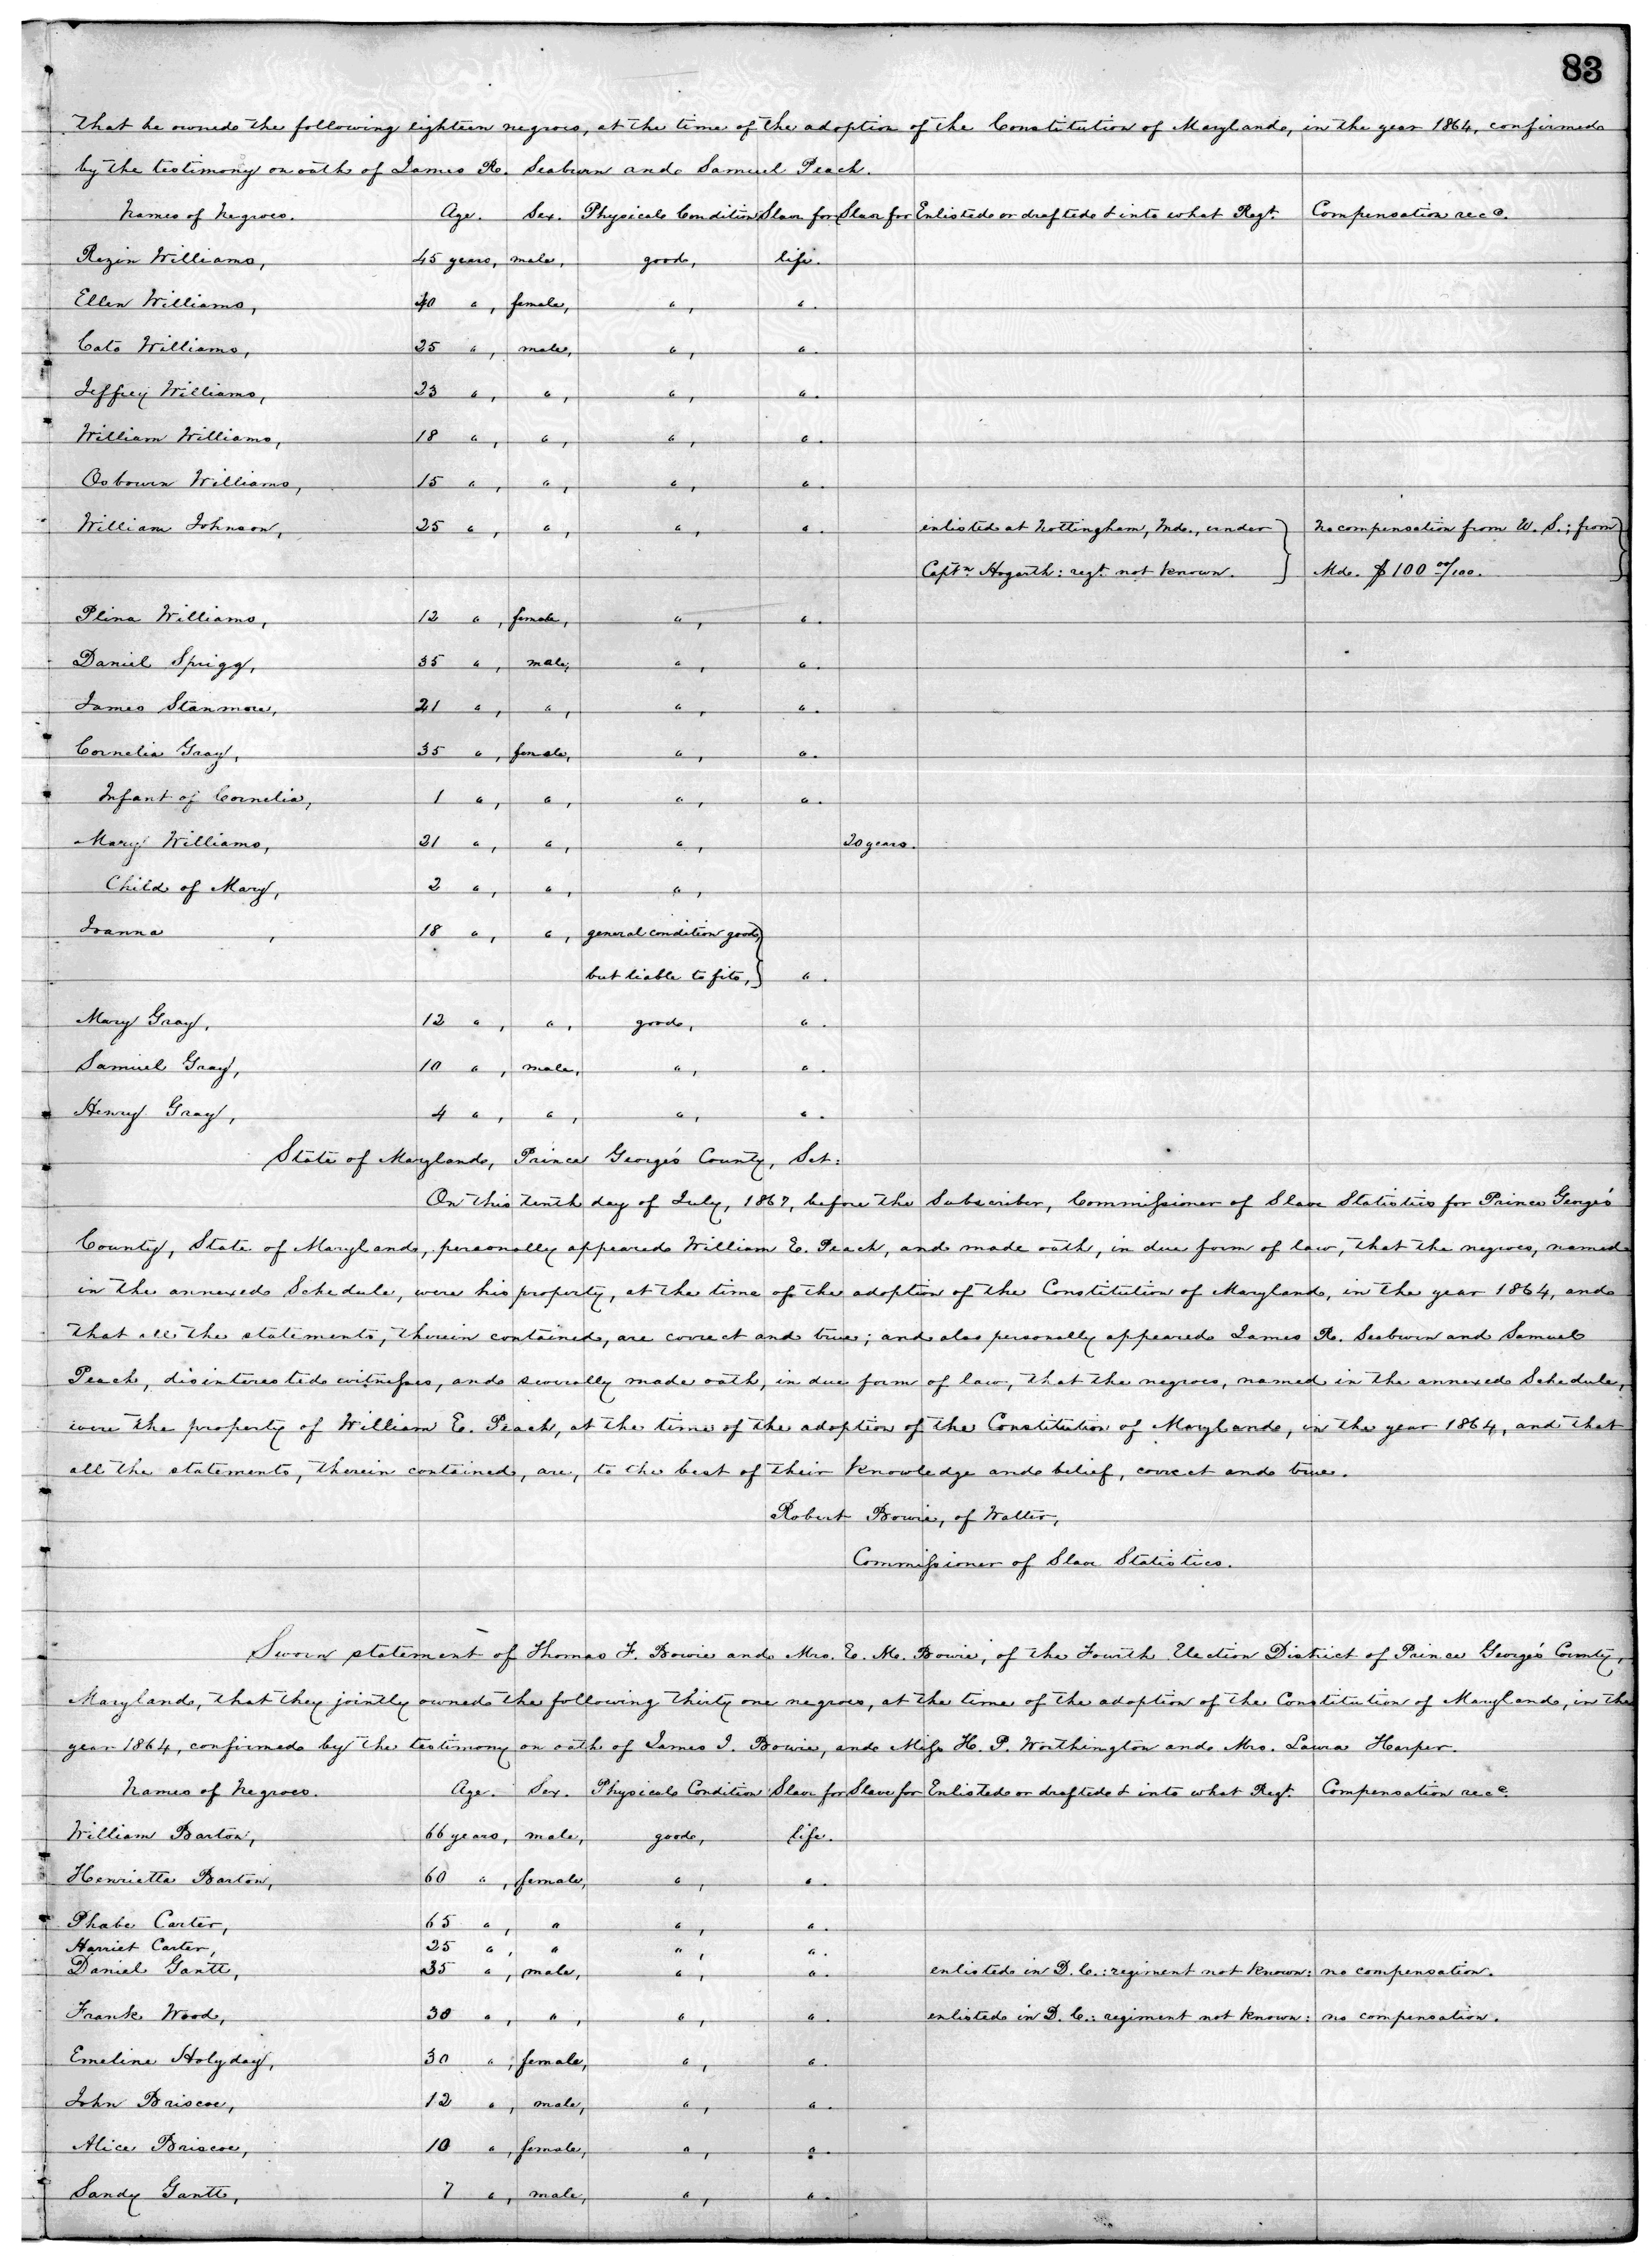 83
that he owned the following eighteen negroes, at the time of the adoption of the Constitution of Maryland, in the year 1864, confirmed
by the testimony on oath of James R. Seaburn and Samuel Peach.
Names of Negroes. Age. Sex. Physical Condition Slave for Slave for Enlisted or drafted & into what Regt. Compensation recd.
Rezin Williams, 45 years, male, good, life.
Ellen Williams, 40 ", female, ", ".
Cato Williams, 25 ", male, ", ".
Jeffrey Williams, 23 ", ", ", ".
William Williams, 18 ", ", ", ".
Osbourn Williams, 15 ", ", ", ".
William Johnson, 25 ", ", ", ". enlisted at Nottingham, Md., under no compensation from U. S.; from
Captn. Hogarth: regt. not known. Md. $100 00/100.
Plina Williams, 12 ", female, ", ".
Daniel Sprigg, 35 ", male, ", ".
James Stanmore, 21 ", ", ", ".
Cornelia Gray, 35 ", female, ", ".
Infant of Cornelia, 1 ", ", ", ".
Mary Williams, 21 ", ", ", 20 years.
Child of Mary, 2 ", ", ",
Joanna , 18 ", ", general condition good,
but liable to fits, ".
Mary Gray, 12 ", ", good, ".
Samuel Gray, 10 ", male, ", ".
Henry Gray, 4 ", ", ", ".
State of Maryland, Prince George's County, Sct:
On this tenth day of July, 1867, before the Subscriber, Commissioner of Slave Statistics for Prince George's
County, State of Maryland, personally appeared William E. Peach, and made oath, in due form of law, that the negroes, named
in the annexed Schedule, were his property, at the time of the adoption of the Constitution of Maryland, in the year 1864, and
that all the statements, therein contained, are correct and true; and also personally appeared James R. Seabourn and Samuel
Peach, disinterested witnesses, and severally made oath, in due form of law, that the negroes, named in the annexed Schedule,
were the property of William E. Peach, at the time of the adoption of the Constitution of Maryland, in the year 1864, and that
all the statements, therein contained, are, to the best of their knowledge and belief, correct and true.
Robert Bowie, of Walter,
Commissioner of Slave Statistics.
Sworn statement of Thomas F. Bowie and Mrs. E. M. Bowie, of the Fourth Election District of Prince George's County,
Maryland, that they jointly owned the following thirty one negroes, at the time of the adoption of the Constitution of Maryland, in the
year 1864, confirmed by the testimony on oath of James J. Bowie, and Miss H. P. Worthington and Mrs. Laura Harper.
Names of Negroes. Age. Sex. Physical Condition Slave for Slave for Enlisted or drafted & into what Regt. Compensation recd.
William Barton, 66 years, male, good, life.
Henrietta Barton, 60 ", female, ", ".
Phabe Carter, 65 ", " ", ".
Harriet Carter, 25 ", " ", ".
Daniel Gantt, 35 ", male, ", ". enlisted in D. C.: regiment not known: no compensation.
Frank Wood, 30 ", ", ", ". enlisted in D. C.: regiment not known: no compensation.
Emeline Holyday, 30 ", female, ", ".
John Briscoe, 12 ", male, ", ".
Alice Briscoe, 10 ", female, ", ".
Sandy Gantt, 7 ", male, ", ".